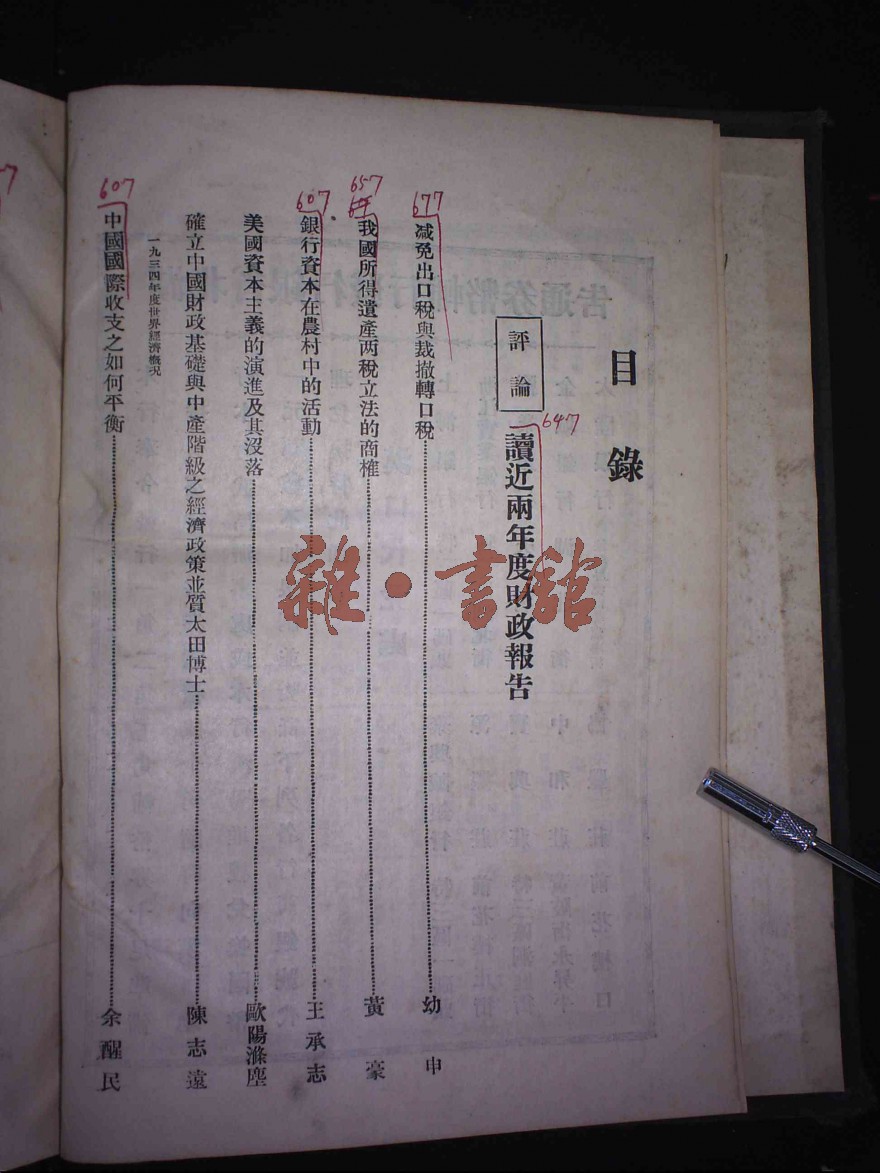 目錄
評論
讀近兩年度財政報告
647
減免出口稅與裁撤轉口稅 幼申
677
我國所得遺產两稅立法的商榷 黃豪
657
銀行資本在農村中的活動 王承志
607
美國資本主義的演進及其沒落 歐陽滌塵
確立中國財政基礎與中產階級之經濟政策並質太田博士 陳志遠
一九三四年度世界經濟概况
中國國際收支之如何平衡 余醒民
607
雜·書館